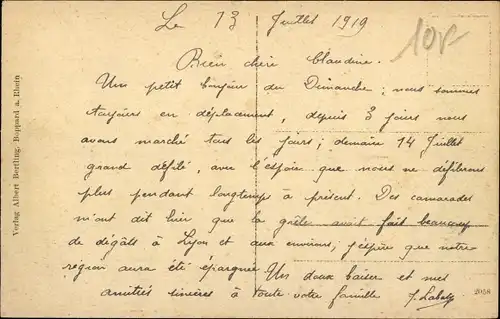 Le 13 Juillet 1919
10F
Bien chère Claudine.
Un petit bonjour du Dimanche; nous sommes
toujours en déplacement, depuis 3 jours nous
avons marché tous les jours; demain 14 Juillet
grand défilé, avec l'espoir que nous ne défilerons
plus pendant longtemps à présent. Des camarades
m'ont dit hier que la grêle avait fait beaucoup
de dégâts à Lyon et aux environs, j'espère que notre
région aura été épargnée Un doux baiser et mes
amitiés sincères à toute votre famille J.
Verlag Albert Bertling, Boppard a. Rhein
2058